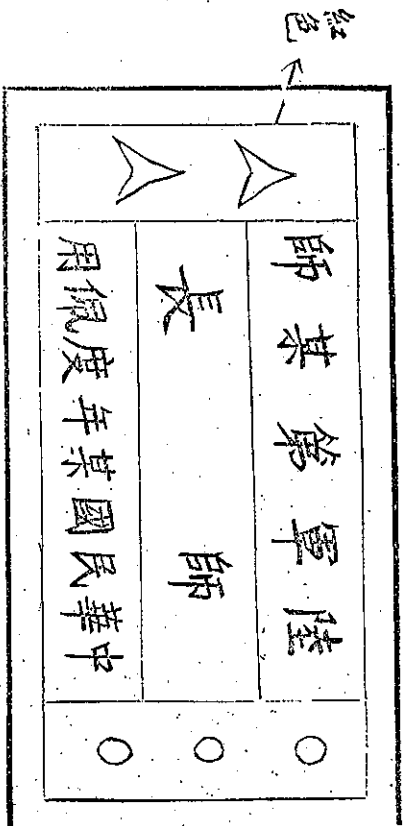 紅色
陸軍第某師
師長
中華民國某年度佩用